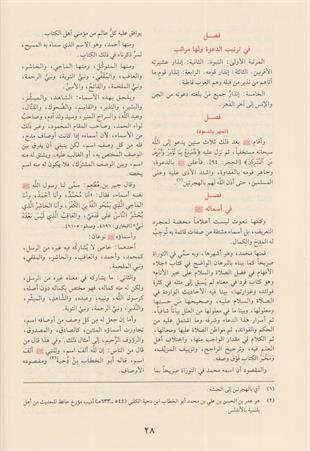 فصل
في ترتيب الدعوة ولها مراتب
المرتبة الأولى: النبوة. الثانية: إنذار عشيرته
الأقربين. الثالثة: إنذار قومه. الرابعة: إنذار قوم ما
أتاهم من نذير من قبله وهم العرب قاطبة.
الخامسة: إنذار جميع مَن بلغته دعوته من الجن
والإنس إلى آخر الدهر.
فصل
[الجهر بالدعوة]
وأقام ﷺ بعد ذلك ثلاث سنين يدعو إلى الله
سبحانه مستخفيًا، ثم نزل عليه
فأعلن ﷺ بالدعوة،
وجاهر قومه بالعداوة، واشتد الأذى عليه وعلى
المسلمين، حتى أذن الله لهم بالهجرتين(١)
فصل
في أسمائه ﷺ
وكلها نعوت ليست أعلامًا محضة لمجرد
التعريف، بل أسماء مشتقة من صفات قائمة به تُوجِبُ
له المدح والكمال.
فمنها محمد، وهو أشهرها، وبه سمِّي في التوراة
صريحًا كما بيناه بالبرهان الواضح في كتاب «جلاء
الأفهام في فضل الصلاة والسلام على خير الأنام»
وهو كتاب فرد في معناه لم يُسبق إلى مثله في كثرة
فوائده وغزارتها، بينا فيه الأحاديث الواردة في
الصلاة والسلام عليه، وصحيحها من حسنها
ومعلولها، وبينا ما في معلولها من العلل بيانًا شافيًا،
ثم أسرار هذا الدعاء وشرفه وما اشتمل عليه من
الحكم والفوائد، ثم مواطن الصلاة عليه ومحالها،
ثم الكلام في مقدار الواجب منها، واختلاف أهل
العلم فيه، وترجيح الراجح، وتزييف المزيَّف،
ومَخبَرُ الكتاب فوق وصفه.
والمقصود أن اسمه محمد في التوراة صريحًا بما
يوافق عليه كلُّ عالم من مؤمني أهل الكتاب.
ومنها أحمد، وهو الاسم الذي سماه به المسيح،
لسرٍّ ذكرناه في ذلك الكتاب.
ومنها المتوكل، ومنها الماحي، والحاشر،
والعاقب، والمُقفِّي، ونبيُّ التوبة، ونبيُّ الرحمة،
ونبيُّ الملحمة، والفاتح، والأمين.
ويلحق بهذه الأسماء: الشاهد، والمبشِّر،
والبشير، والنذير، والقاسم، والضحوك، والقتال،
وعبد الله، والسراج المنير، وسيد ولد آدم، وصاحب
لواء الحمد، وصاحب المقام المحمود، وغير ذلك
من الأسماء، لأن أسماءه إذا كانت أوصاف مدح،
فله من كل وصف اسم، لكن ينبغي أن يفرق بين
الوصف المختص به، أو الغالب عليه، ويشتق له منه
اسم، وبين الوصف المشترك، فلا يكون له منه اسم
يخصه.
وقال جبير بن مُطعِم: سمَّى لنا رسول الله ﷺ
نفسه أسماء، فقال: «أنا مُحَمَّدٌ، وَأَنَا أَحْمَدُ، وَأَنَا
المَاحِي الَّذِي يَمْحُو اللَّهُ بِيَ الكُفْرَ، وَأَنَا الحَاشِرُ الَّذِي
يُحْشَرُ النَّاسُ عَلَى قَدَمَيَّ، وَالعَاقِبُ الَّذِي لَيْسَ بَعْدَهُ
نَبِيٌّ»
وأسماؤه ﷺ نوعان:
أحدهما: خاص لا يشاركه فيه غيره من الرسل،
كمحمد، وأحمد، والعاقب، والحاشر، والمقفي،
ونبي الملحمة.
والثاني: ما يشاركه في معناه غيره من الرسل،
ولكن له منه كماله، فهو مختص بكماله دون أصله،
كرسول الله، ونبيه، وعبده، والشاهد، والمبشر،
والنذير، ونبيِّ الرحمة، ونبيِّ التوبة.
وأما إن جعل له من كل وصف من أوصافه اسم،
تجاوزت أسماؤه المئتين، كالصادق، والمصدوق،
والرؤوف الرحيم، إلى أمثال ذلك. وفي هذا قال من
قال من الناس: إن لله ألف اسم، وللنبي ﷺ ألف
اسم، قاله أبو الخطاب بن دِحية(٢) ومقصوده
الأوصاف.
(١) أي بالهجرتين إلى الحبشة.
(٢) هو عمر بن الحسن بن علي بن محمد أبو الخطاب ابن دحية الكلبي (٥٤٤ـ٦٣٣هـ) أديب مؤرخ حافظ للحديث من أهل
بلنسية بالأندلس.
٢٨